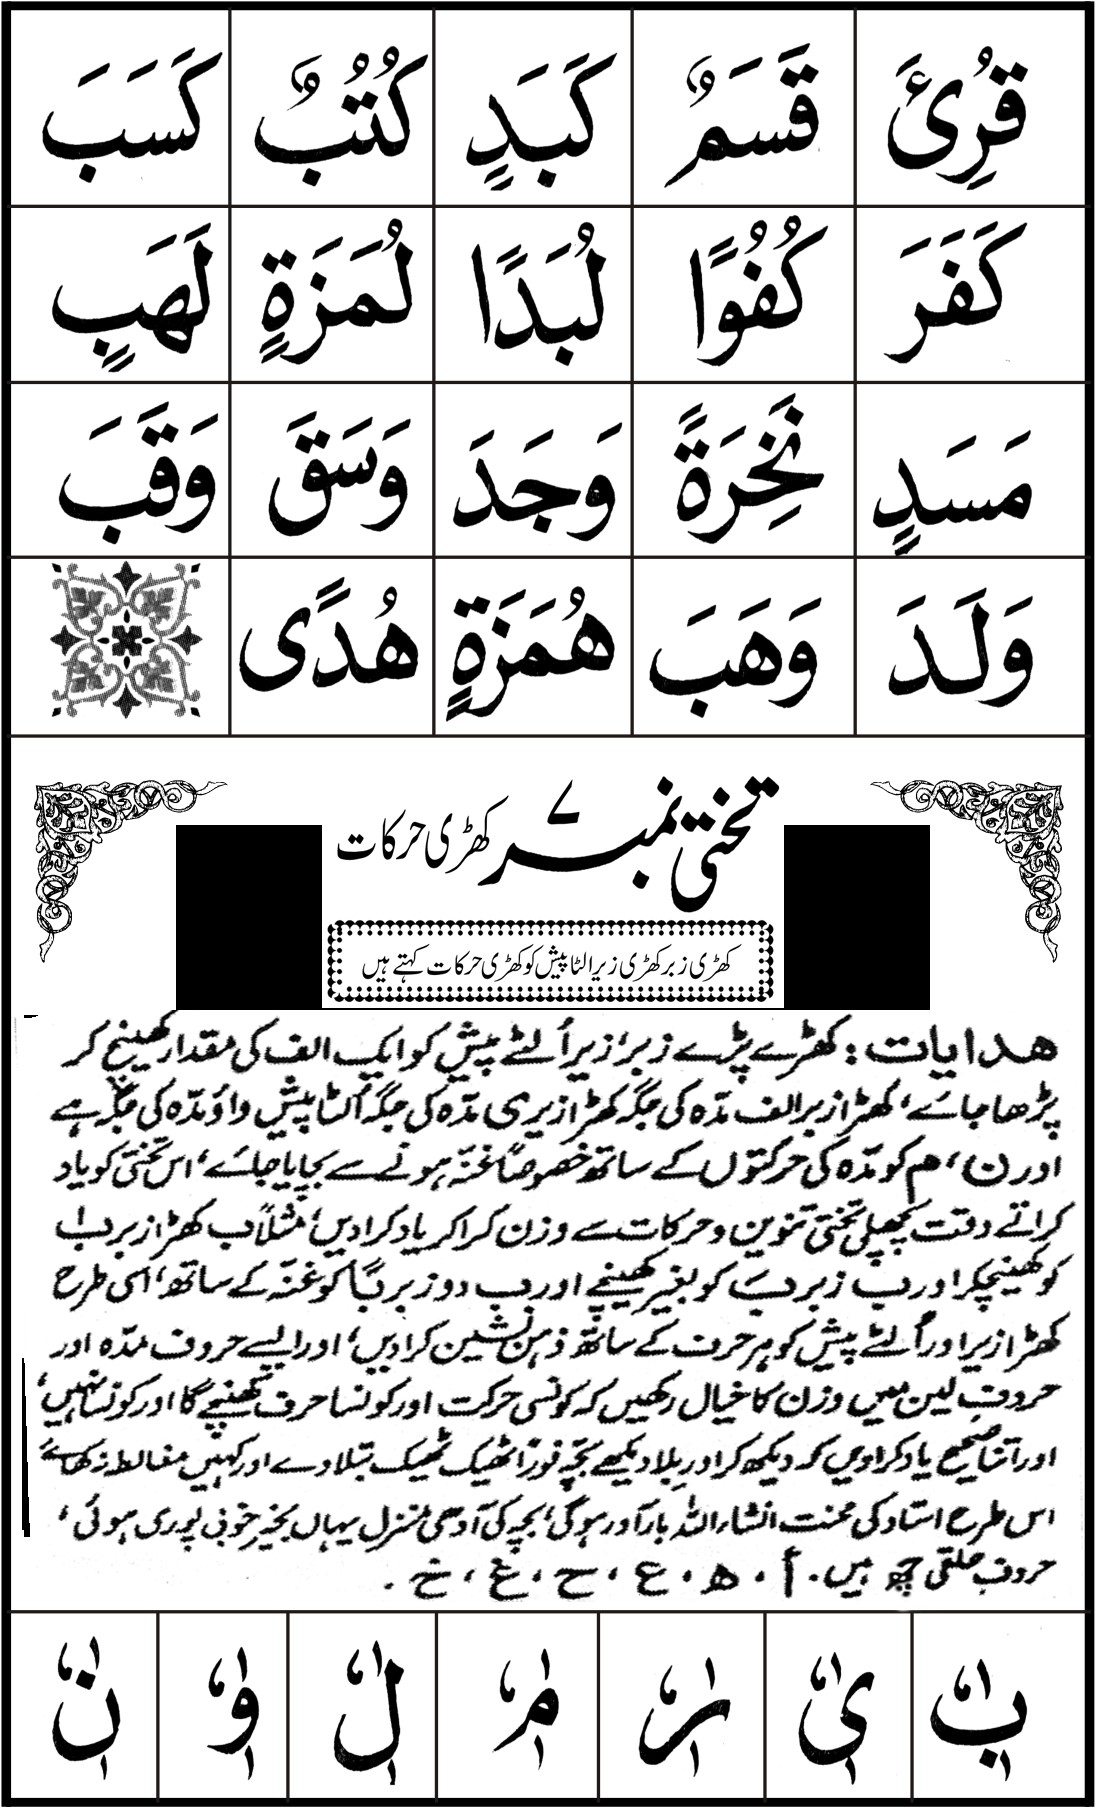 قُرِئَ قَسَمٌ كَبَدٍ كُتُبٌ كَسَبَ
كَفَرَ كُفُوًا لُبَدًا لُمَزَةٍ لَهَبٍ
مَسَدٍ نَخِرَةً وَجَدَ وَسَقَ وَقَبَ
وَلَدَ وَهَبَ هُمَزَةٍ هُدًى
تختی نمبر ۷ کھڑی حرکات
کھڑی زبر کھڑی زیر الٹا پیش کو کھڑی حرکات کہتے ہیں
ھدایات : کھڑے پڑے زبر، زیر اُلٹے پیش کو ایک الف کی مقدار کھینچ کر
پڑھا جائے، کھڑا زبر الف مدّہ کی جگہ کھڑا زیر ی مدّہ کی جگہ اُلٹا پیش واؤ مدّہ کی جگہ ہے
اور ن، م کو مدّہ کی حرکتوں کے ساتھ خصوصاً غنّہ ہونے سے بچایا جائے، اس تختی کو یاد
کراتے وقت پچھلی تختی تنوین و حرکات سے وزن کرا کر یاد کرادیں، مثلاً ب کھڑا زبر بٰ
کو کھینچکر اور ب زبر بَ کو بغیر کھینچے اور ب دو زبر بًا کو غنّہ کے ساتھ، اسی طرح
کھڑا زیر اور اُلٹے پیش کو ہر حرف کے ساتھ ذہن نشین کرادیں، اور ایسے حروف مدّہ اور
حروف لین میں وزن کا خیال رکھیں کہ کونسی حرکت اور کونسا حرف کھینچے گا اور کونسا نہیں،
اور اتنا صحیح یاد کراویں کہ دیکھ کر اور بِلا دیکھے بچّہ فوراً ٹھیک ٹھیک بتلا دے اور کہیں مغالطہ نہ کھائے
اس طرح استاد کی محنت انشاء اللہ بار آور ہوگی، بچہ کی آدھی منزل یہاں بخیر خوبی پوری ہوئی،
حروف حلقی چھ ہیں. أ ، ھ ، ع ، ح ، غ ، خ .
ب ی ر م ل و ن